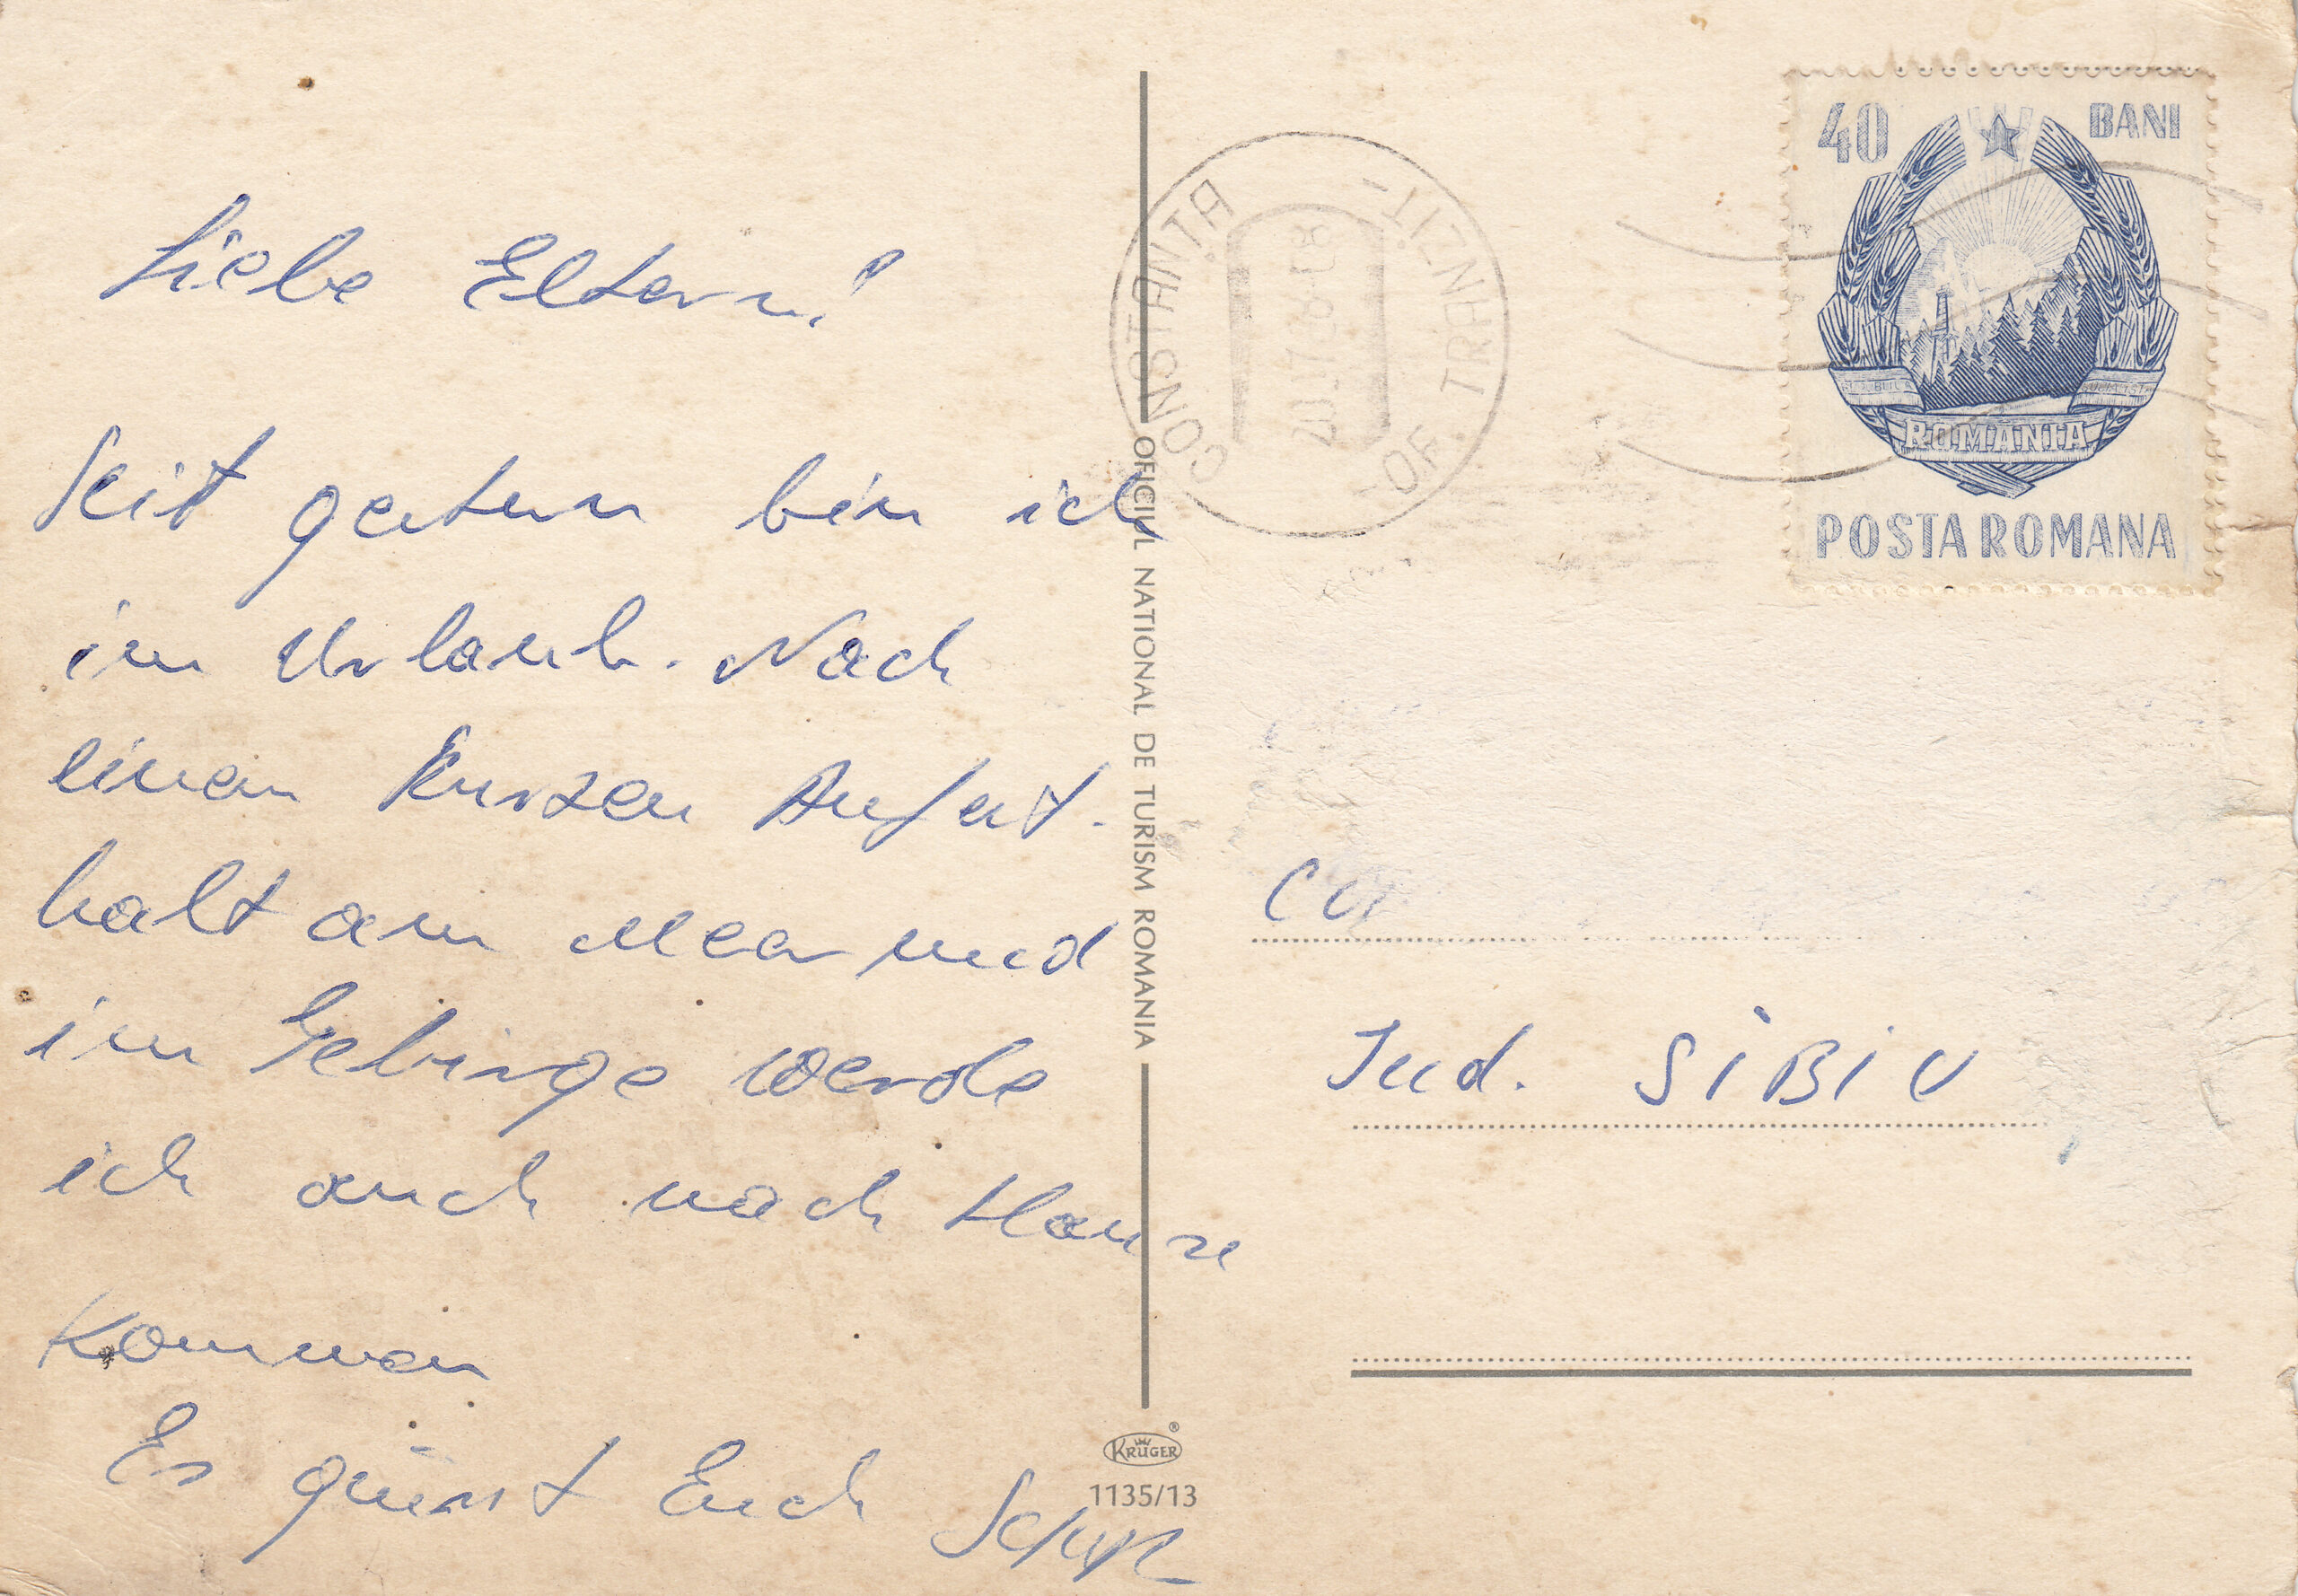 Liebe Eltern!
Seit gestern bin ich
im Urlaub. Nach
einen Kurzen Aufent-
halt am Meer und
im Gebirge werde
ich auch nach Hause
Kommen
Es grüsst Euch
OFICIUL NATIONAL DE TURISM ROMANIA
KRÜGER®
1135/13
CONSTANȚA
TRANZIT
OF.
40 BANI
ROMANIA
POSTA ROMANA
Jud. SIBIU